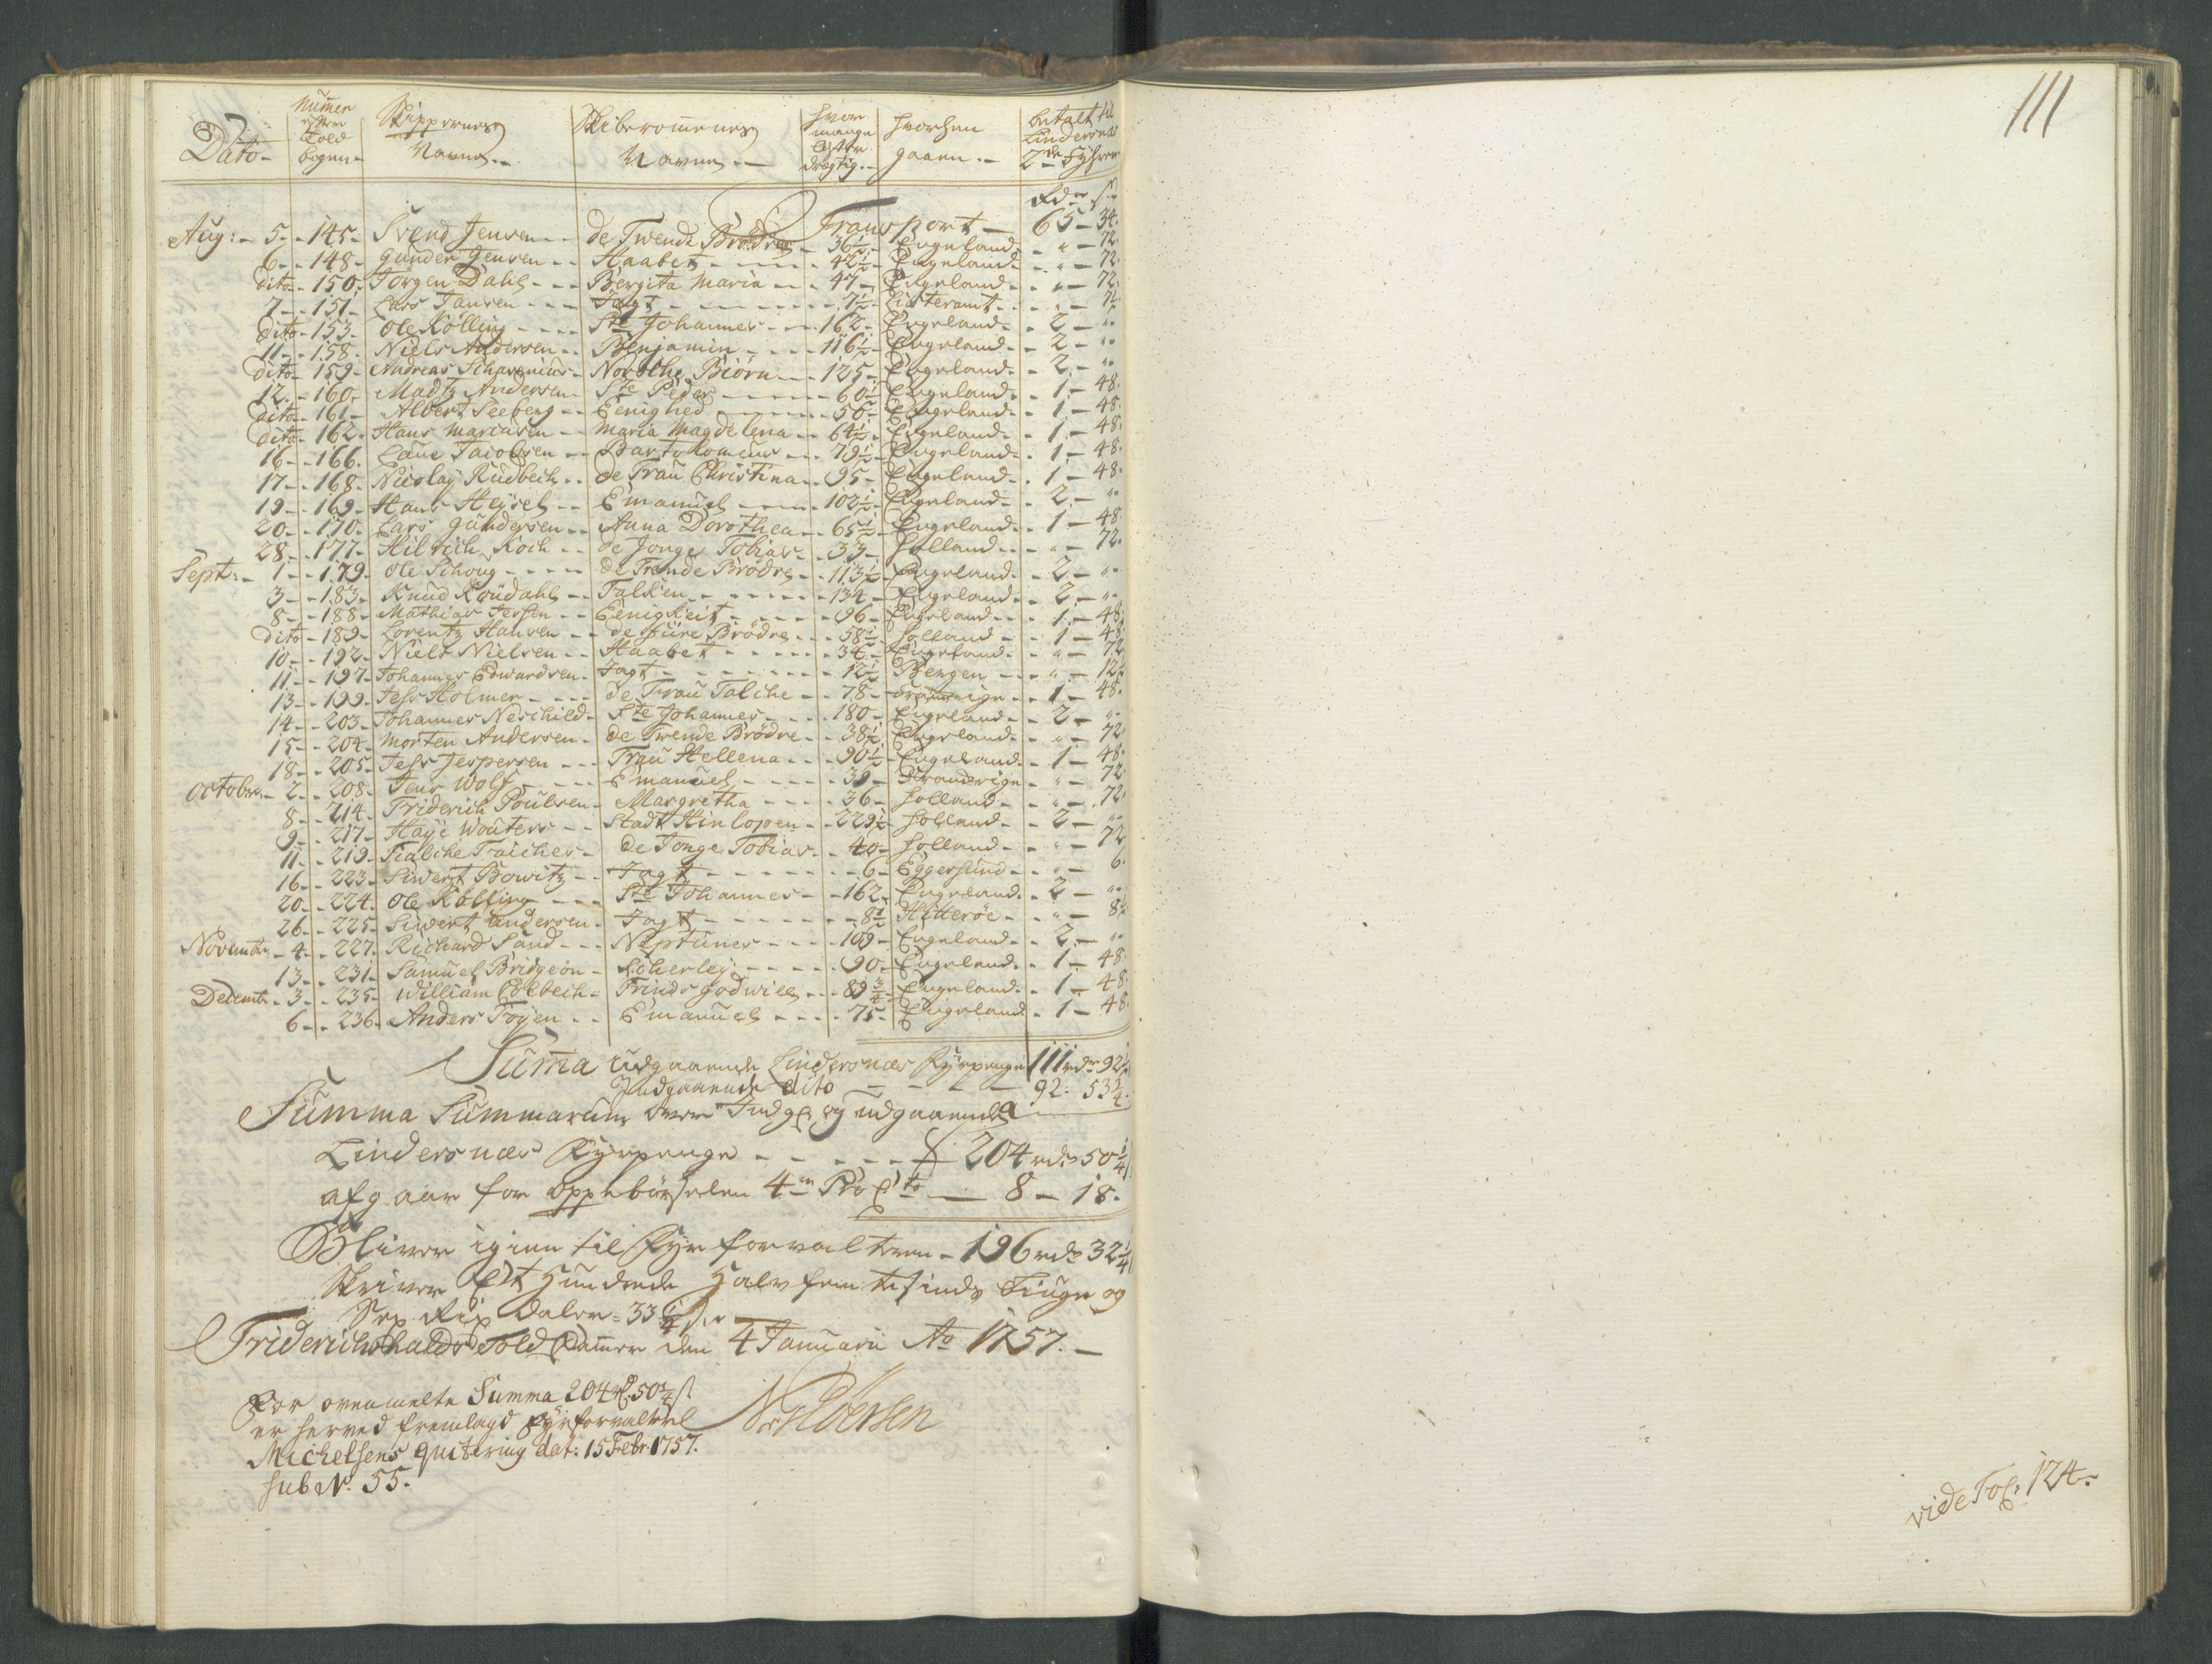 Dato- Numer efter Told bogen- Skippernes Navne.- Skiberomenes Navne.- Hvor mange Lester drægtig.- Hvorhen gaaen.- betalt til Lindersnæs 2de Fyhrer
Rdr s
Transport - 65 - 34.
Aug:- 5- -145- Svend Jensen- - de Twende Brødre - 36½- Engeland- - " - 72.
6- - 148- Gunder Jensen - - Haabet - - - - 42½- Engeland- - " - 72.
dito- 150- Jörgen Dahl - - - Bergita Maria - - 47- Engeland- - " - 72.
7- - 151- Lars Jansen - - - Jagt - - - - - - 7½- Listeramt- - " - 7½
dito- 153- Ole Kölling - - - - Ste Johannes - - 162- Engeland- - 2 - "
11- - 158- Niels Andersen - - Benjamin - - - - 116½- Engeland- - 2 - "
dito- 159- Andreas Scharenius- Norsche Biörn - - 125- Engeland- - 2 - "
12- - 160- Madtz Andersen- Ste Peder - - - - 60½ Engeland- - 1 - 48.
dito- 161- Albert Seeberg - - Eenighed - - - - 56- Engeland- - 1 - 48.
dito- 162- Hans Mariusen - - Maria Magdelena - - 64½- Engeland- - 1 - 48.
16- - 166. Laue Jacobsen - - Bartolomeus - - - 79½- Engeland- - 1 - 48.
17- - 168- Nicolaj Rüdbech - - de Frau Christina - - 95- Engeland- - 1 - 48.
19- - 169- Hans Heysel - - Emanuel - - - - 102½- Engeland- - 2 - "
20- - 170- Lars Gundersen - - Anna Dorothea - - 65½- Engeland- - 1 - 48.
28- - 177- Hilrich Koch - - de Jonge Tobias - - 33- Holland- - - " - 72.
Sept:- 1- - 179- Ole Schoug - - - - de Twende Brødre - - 113½- Engeland- - 2 - "
3- - 183- Knud Koudahl - - Falken - - - - - - 134- Engeland- - 2 - "
8- - 188- Mathias Jessen - - Eenigkeit - - - - - 96- Engeland- - - 1 - 48.
dito- 189- Lorentz Hansen - - de fiire Brödre - - - 58½- Holland - - 1 - 48.
10- - 192- Niels Nielsen - - Haabet - - - - - - 36- Engeland- - " - 72
11- - 197- Johannes Edwardsen- Jagt - - - - - - - 12½ Bergen - - - " - 12½
13- - 199- Jess Holmer - - - de Frau Talche - - 78- - 1 - 48.
14- - 203- Johannes Neschild- Ste Johannes - - - 180- Engeland- - 2 - "
15- - 204- Morten Andersen- de Twende Brödre - - 38½ Engeland- - " - 72.
18- - 205- Jess Jespersen - - - Frau Hellena - - - 90½- Engeland- - 1 - 48.
October- 2- - 208- Jens Wolf - - - Emanuel - - - - 39- - " - 72.
8- - 214- Friderich Poulsen- Margretha - - - - 36- Holland- - " - 72.
9- - 217- Haye Wouters - - Stadt Hinlopen - - 229½ Holland- - 2 - "
11- - 219- Fialche Traicher- de Jonge Tobias - - 40- Holland- - " - 72.
16- - 223- Siwert Bowitz - - Jagt - - - - - - - 6- Eggersund - - " - 6.
20- - 224- Ole Kölling - - - Ste Johannes - - 162- Engeland- - 2 - "
26- - 225- Siwert Andersen- Jagt - - - - - - - 8½ Hitteröe - - " - 8½
Novembr- 4- - 227. Richard Sand - - - Neptunes - - - - 109- Engeland- - 2 - "
13- - 231- Samuel Bridgeon - - - - - - 90- Engeland- - 1 - 48.
Decembr- 3- - 235- William Colbech- Frinds Godwill - - 89¾- Engeland- - 1 - 48.
6- - 236- Anders Foyen - - Emanuel - - - - 75- Engeland- - 1 - 48.
Suma udgaaende Lindersnæs Fyrpenge 111 rdr 92½
Indgaaende dito - - - - 92: 53¼.
Summa Summarum over Indg: og udgaaende
Lindersnæs Fyrpenge - - - - - 204 rdr 50¼
afgaar for oppebörselen 4re Pro Cto - 8 - 18.
Bliver igien til Fyrforvalteren - 196 rdr 32¼
Skriver Et Hundrede Halvfemtesinds Tiuge og
Sex Rix Daler - 33¼ s:
Friderichshalds Told Camer den 4 Januarii Ao 1757.-
For ovenmelte Summa 204 Rd 50¼ s
er herved fremlagd Fyrforvalter
Michelsens Quitering dat: 15 Febr. 1757.
sub No. 55.
111
vide Fol: 124-